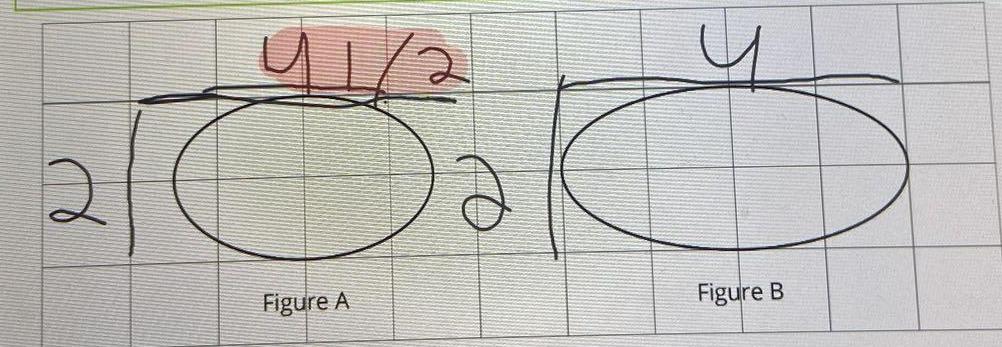 4 1/2
4
2
2
Figure A
Figure B